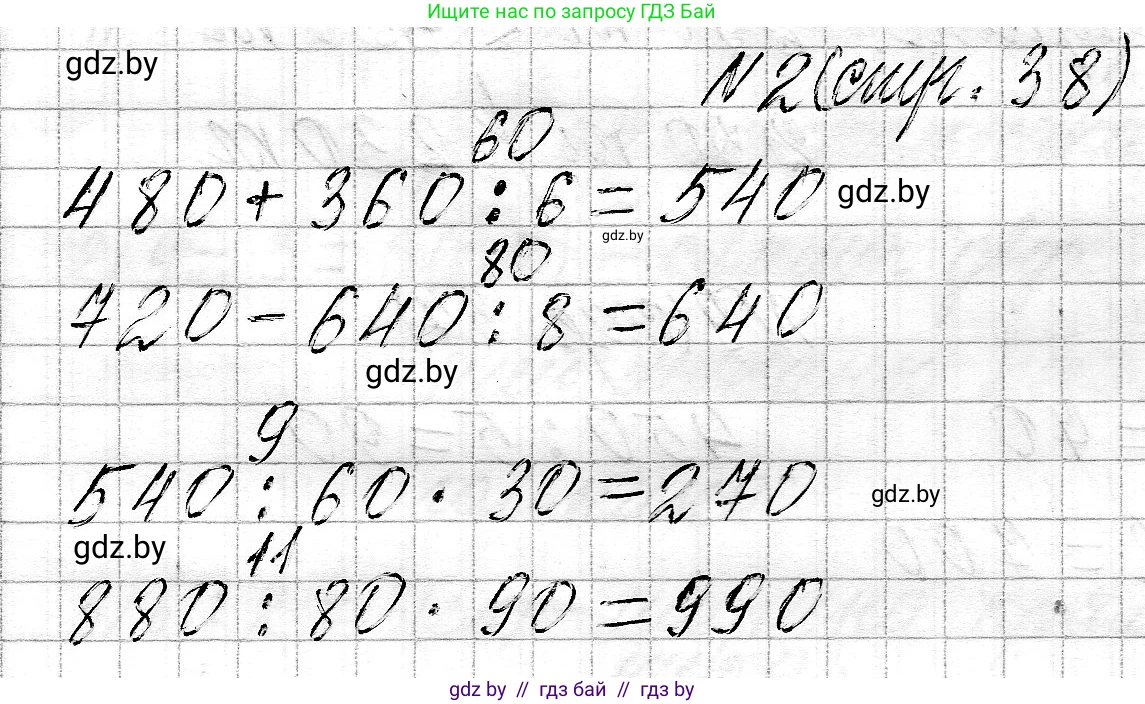 Ищите нас по запросу ГДЗ Бай
gdz.by
N 2 (стр. 38)
60
480 + 360 : 6 = 540 gdz.by
gdz.by
80
720 - 640 : 8 = 640
gdz.by
9
540 : 60 · 30 = 270 gdz.by
gdz.by 11
880 : 80 · 90 = 990
gdz by // гдз бай // гдз by